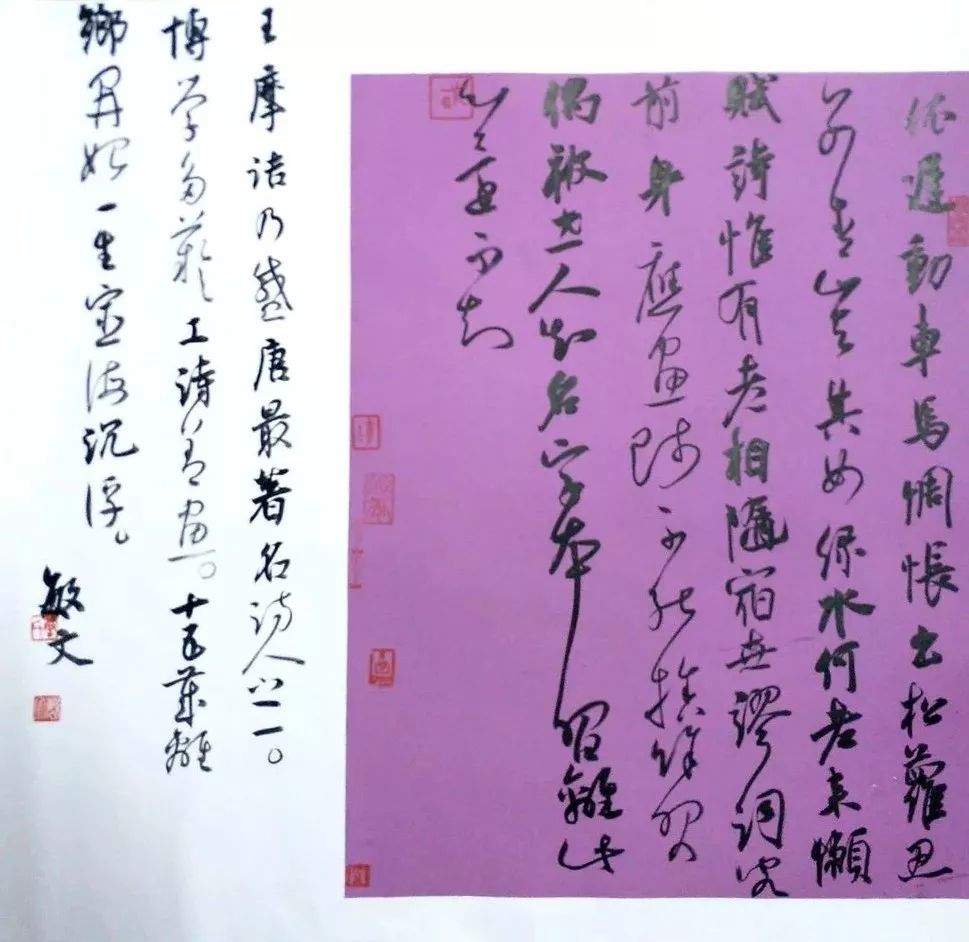 依遲動車馬惆悵出松蘿忍
別青山去其如綠水何老來懶
賦詩惟有老相隨宿世謬詞客
前身應畫師不能捨餘習
偶被世人知名字本習離此
心還不知
王摩诘乃盛唐最著名诗人之一。
博学多藝工詩善画。十五歲離
鄉开始一生宦海沉浮。
敏文